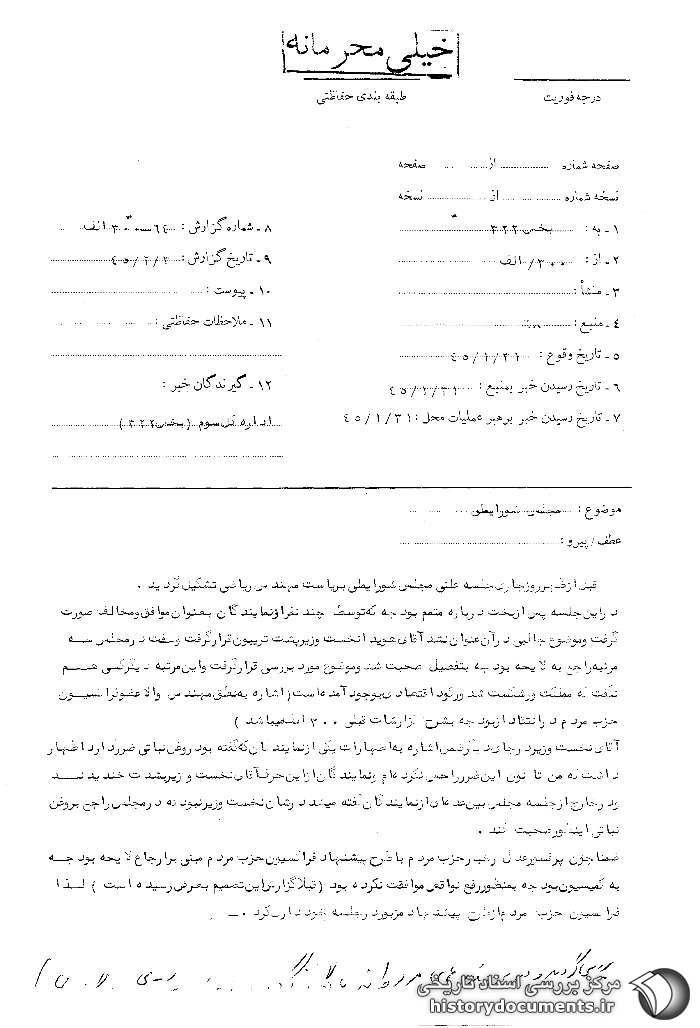 خیلی محرمانه
درجه فوریت
طبقه بندی حفاظتی
صفحه شماره از صفحه
نسخه شماره از نسخه
۱ـ به : بخش ۳۲۲
۲ـ از : ۳۰۰/الف
۳ـ منشأ :
۴ـ منبع :
۵ـ تاریخ وقوع : ۴۵/۱/۲۱
۶ـ تاریخ رسیدن خبر بمنبع : ۴۵/۱/۳۱
۷ـ تاریخ رسیدن خبر برهبر عملیات محل : ۴۵/۱/۳۱
۸ـ شماره گزارش : الف
۹ـ تاریخ گزارش : ۴۵/۲/۳
۱۰ـ پیوست :
۱۱ـ ملاحظات حفاظتی :
۱۲ـ گیرندگان خبر :
اداره کل سوم (بخش ۳۲۲)
موضوع : مجلس شورایملی
عطف/پیرو :
قبل ازظهر روزجاری جلسه علنی مجلس شورایملی بریاست مهندس ریاضی تشکیل گردید .
دراین جلسه پس ازبحث درباره متمم بودجه که توسط چند نفرازنمایندگان بعنوان موافق ومخالف صورت
گرفت وموضوع جالبی درآن عنوان نشد آقای هویدا نخست وزیرپشت تریبون قرارگرفت وگفت درمجلس سه
مرتبه راجع به لایحه بودجه بتفصیل صحبت شد وموضوع مورد بررسی قرارگرفت واین مرتبه دیگرکسی هم
نگفت که مملکت ورشکست شد ورکود اقتصادی بوجود آمده است (اشاره به نطق مهندس والا عضوفراکسیون
حزب مردم درانتقاد ازبودجه بشرح گزارشات قبلی ۳۰۰ الف میباشد )
آقای نخست وزیر درجای دیگرضمن اشاره به اظهارات یکی ازنمایندگان که گفته بود روغن نباتی ضرردارد اظهار
داشت که من تا کنون این ضررراحس نکرده ام ونمایندگان ازاین حرف آقای نخست وزیربشدت خندیدند
ودرخارج ازجلسه مجلس بین عده ای ازنمایندگان گفته میشد درشان نخست وزیرنبود که درمجلس راجع بروغن
نباتی اینطورصحبت کند .
ضمنا چون پرفسورعدل رهبرحزب مردم با طرح پیشنهاد فراکسیون حزب مردم مبنی برارجاع لایحه بودجه
به کمیسیون بودجه بمنظوررفع نواقص موافقت نکرده بود (قبلا گزارش این تصمیم بعرض رسیده است ) لذا
فراکسیون حزب مردم ازطرح پیشنهاد مزبوردرجلسه خودداری کرد .
مرکز بررسی اسناد تاریخی
historydocuments.ir